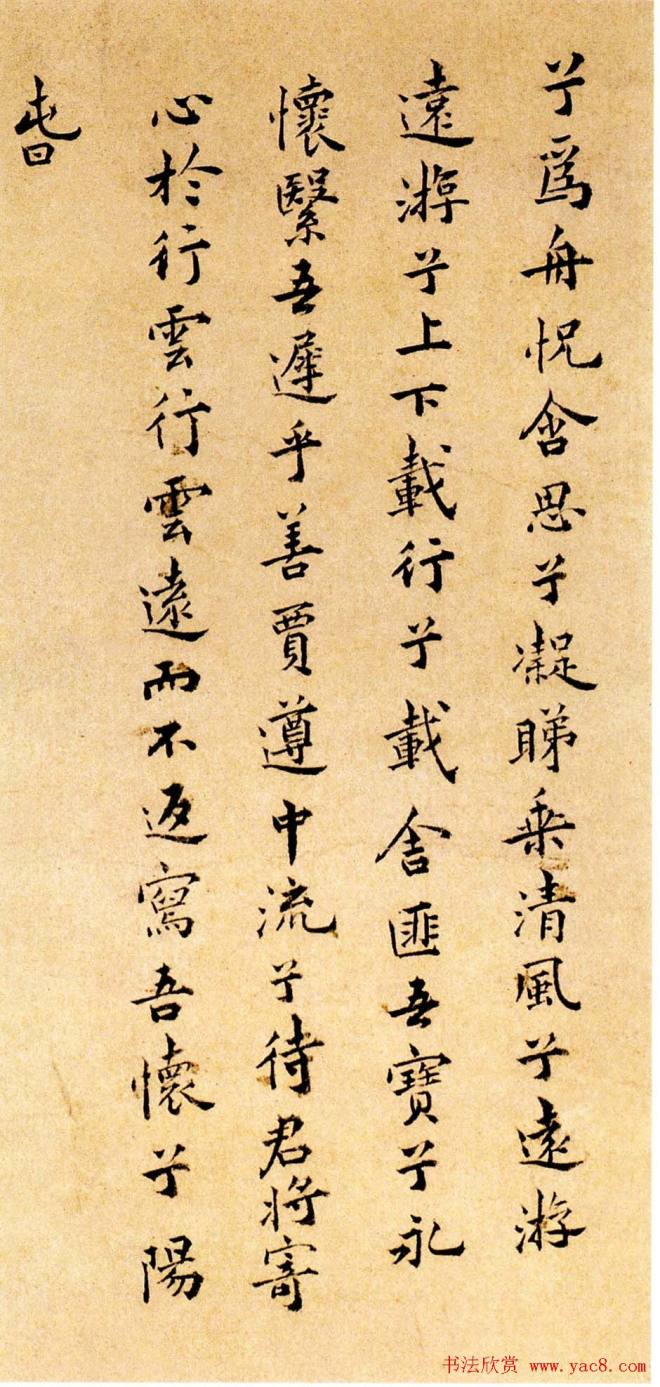 兮爲舟怳含思兮凝睇乘清風兮遠游
遠游兮上下載行兮載舍匪吾寶兮永
懷繄吾遲乎善賈遵中流兮待君將寄
心於行雲行雲遠而不返寫吾懷兮陽
旾
书法欣赏 www.yac8.com